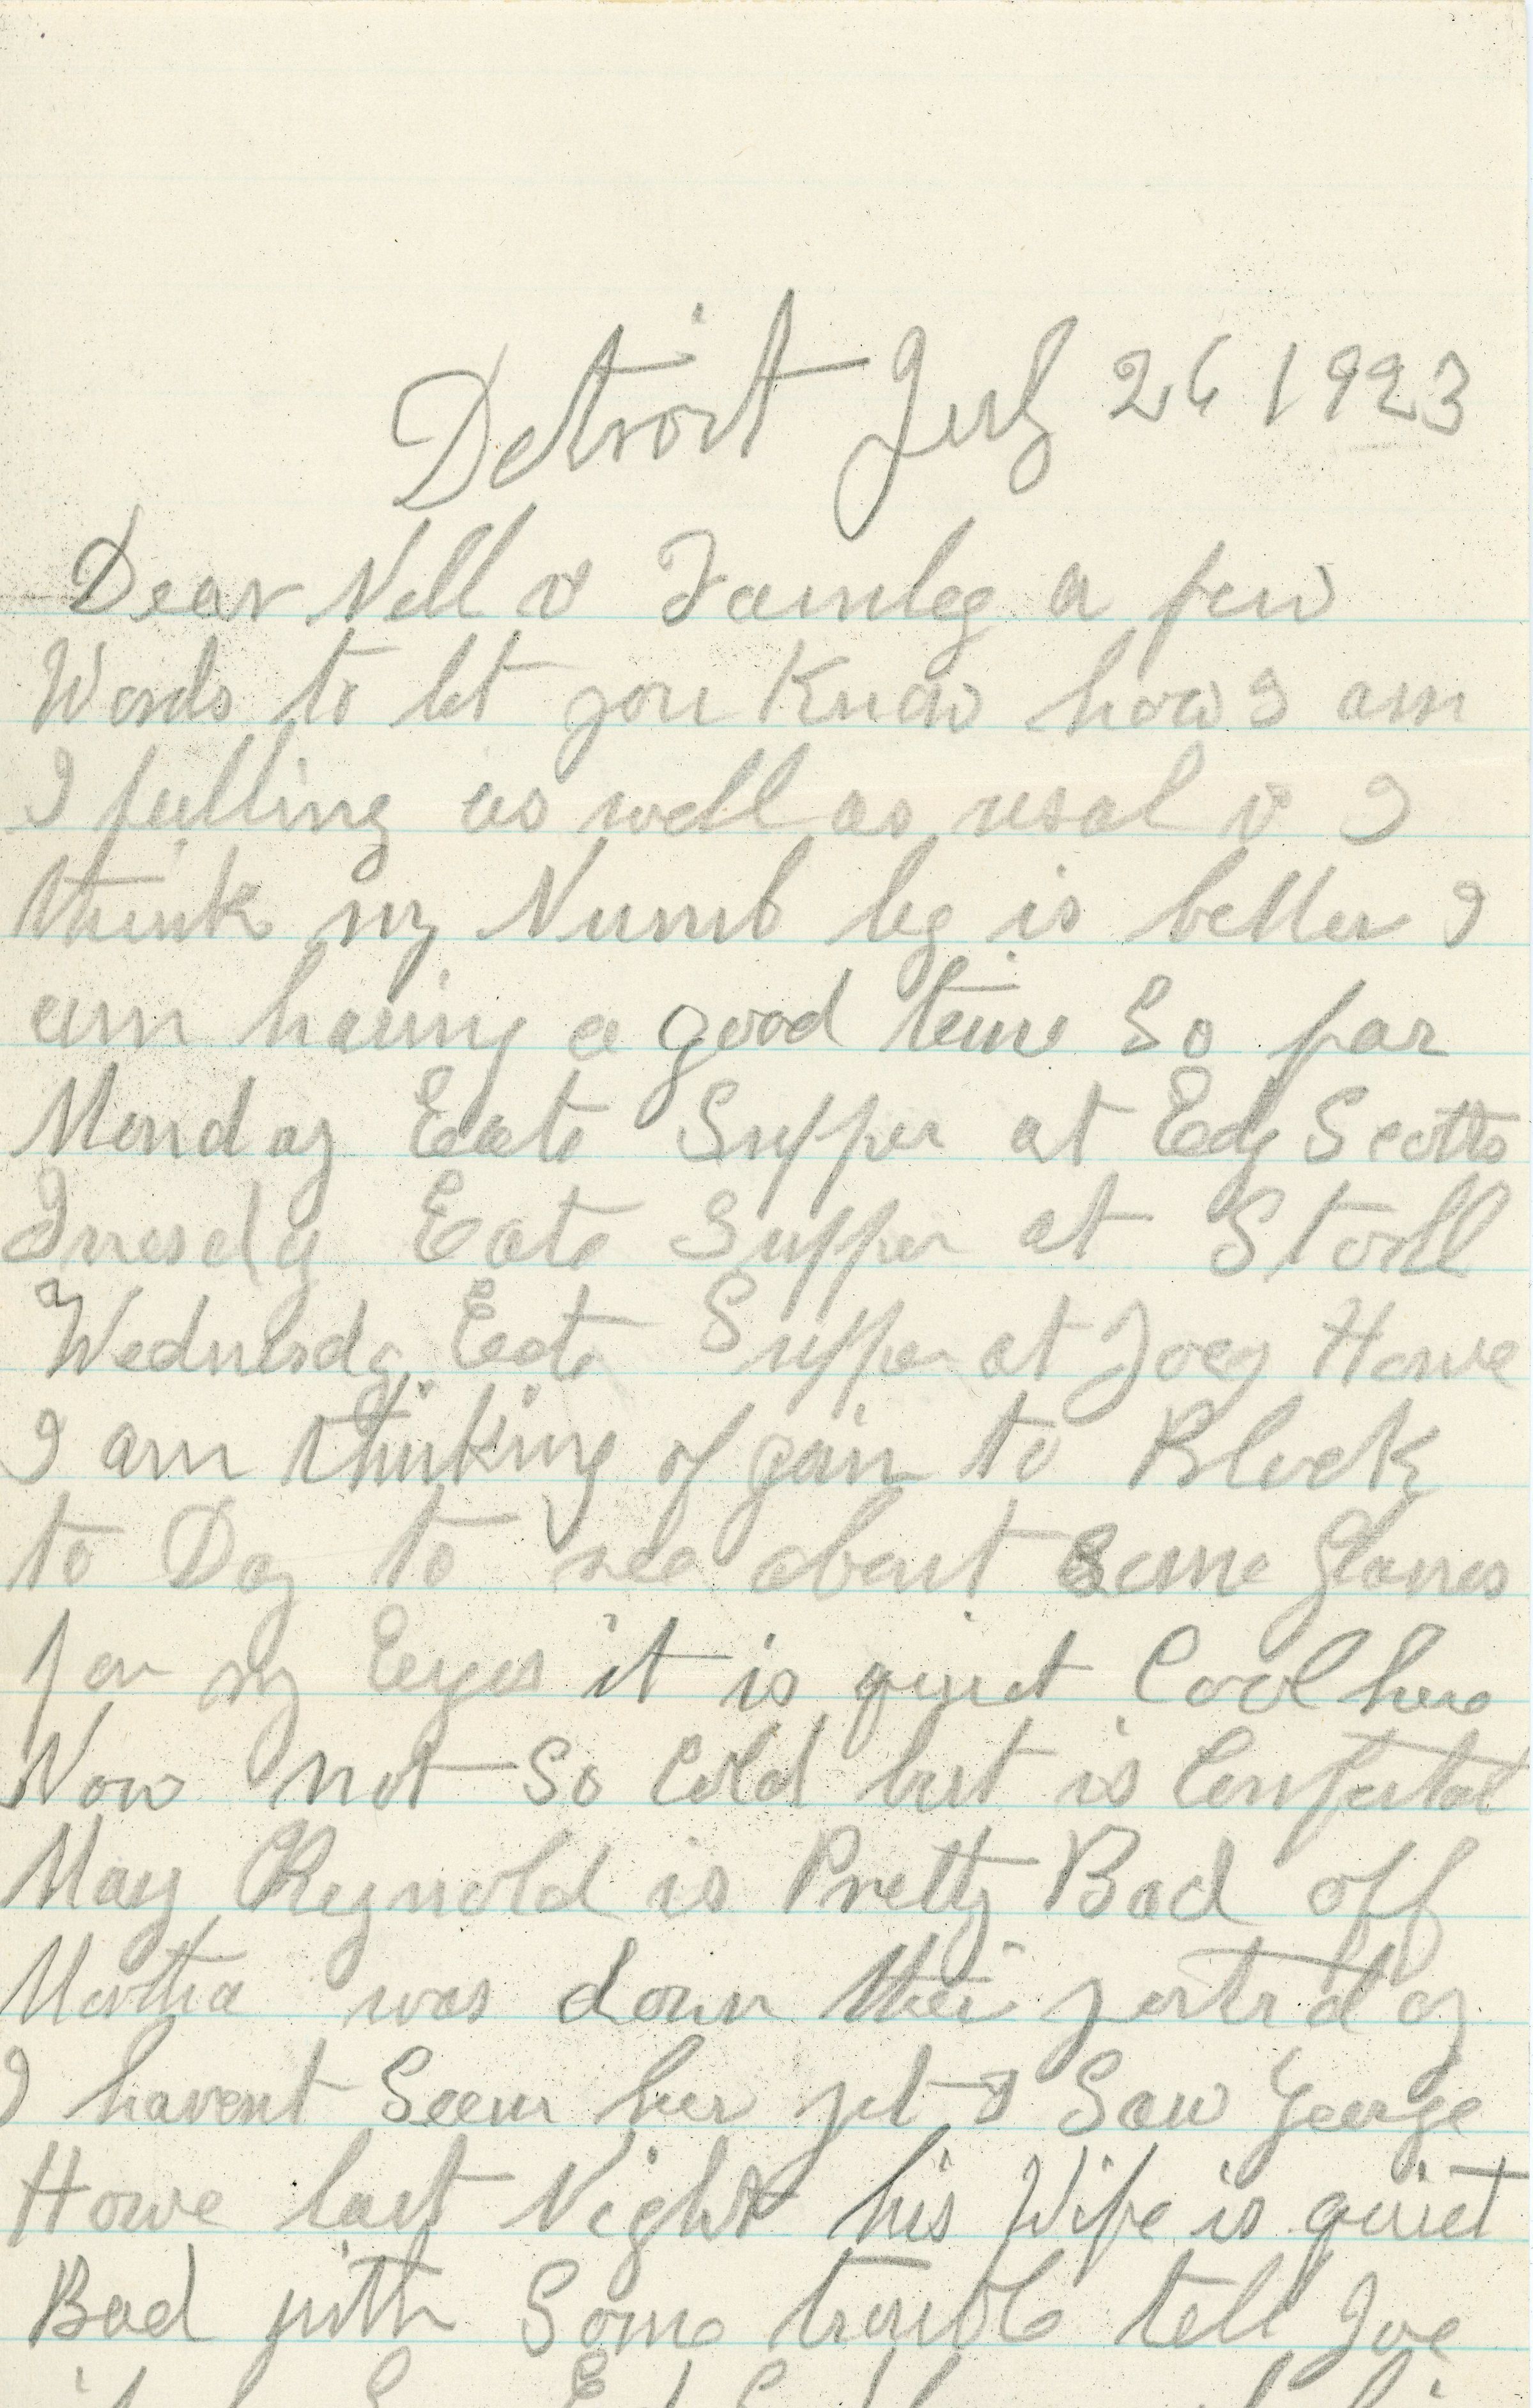 Detroit July 26 1923
Dear Nell & Famley a few
Words to let you Know how I am
I fulling as well as usal & I
think my Numb leg is better I
am having a good time So far
Monday Eate Supper at Edy Scotts
Tuesdy Eate Supper at Stoll
Wednesdy Eate Supper at Joey Howe
I am thinking of goin to Block
to Day to see about Some Glasses
for my Eeyes it is quiet Cool here
Now not So Cold but is Confortal
May Reynold is Pretty Bad off
Martha was down their yestrday
I havent Seem her yet I Saw George
Howe last Night his Wife is quiet
Bad with Some trouble tell Joe